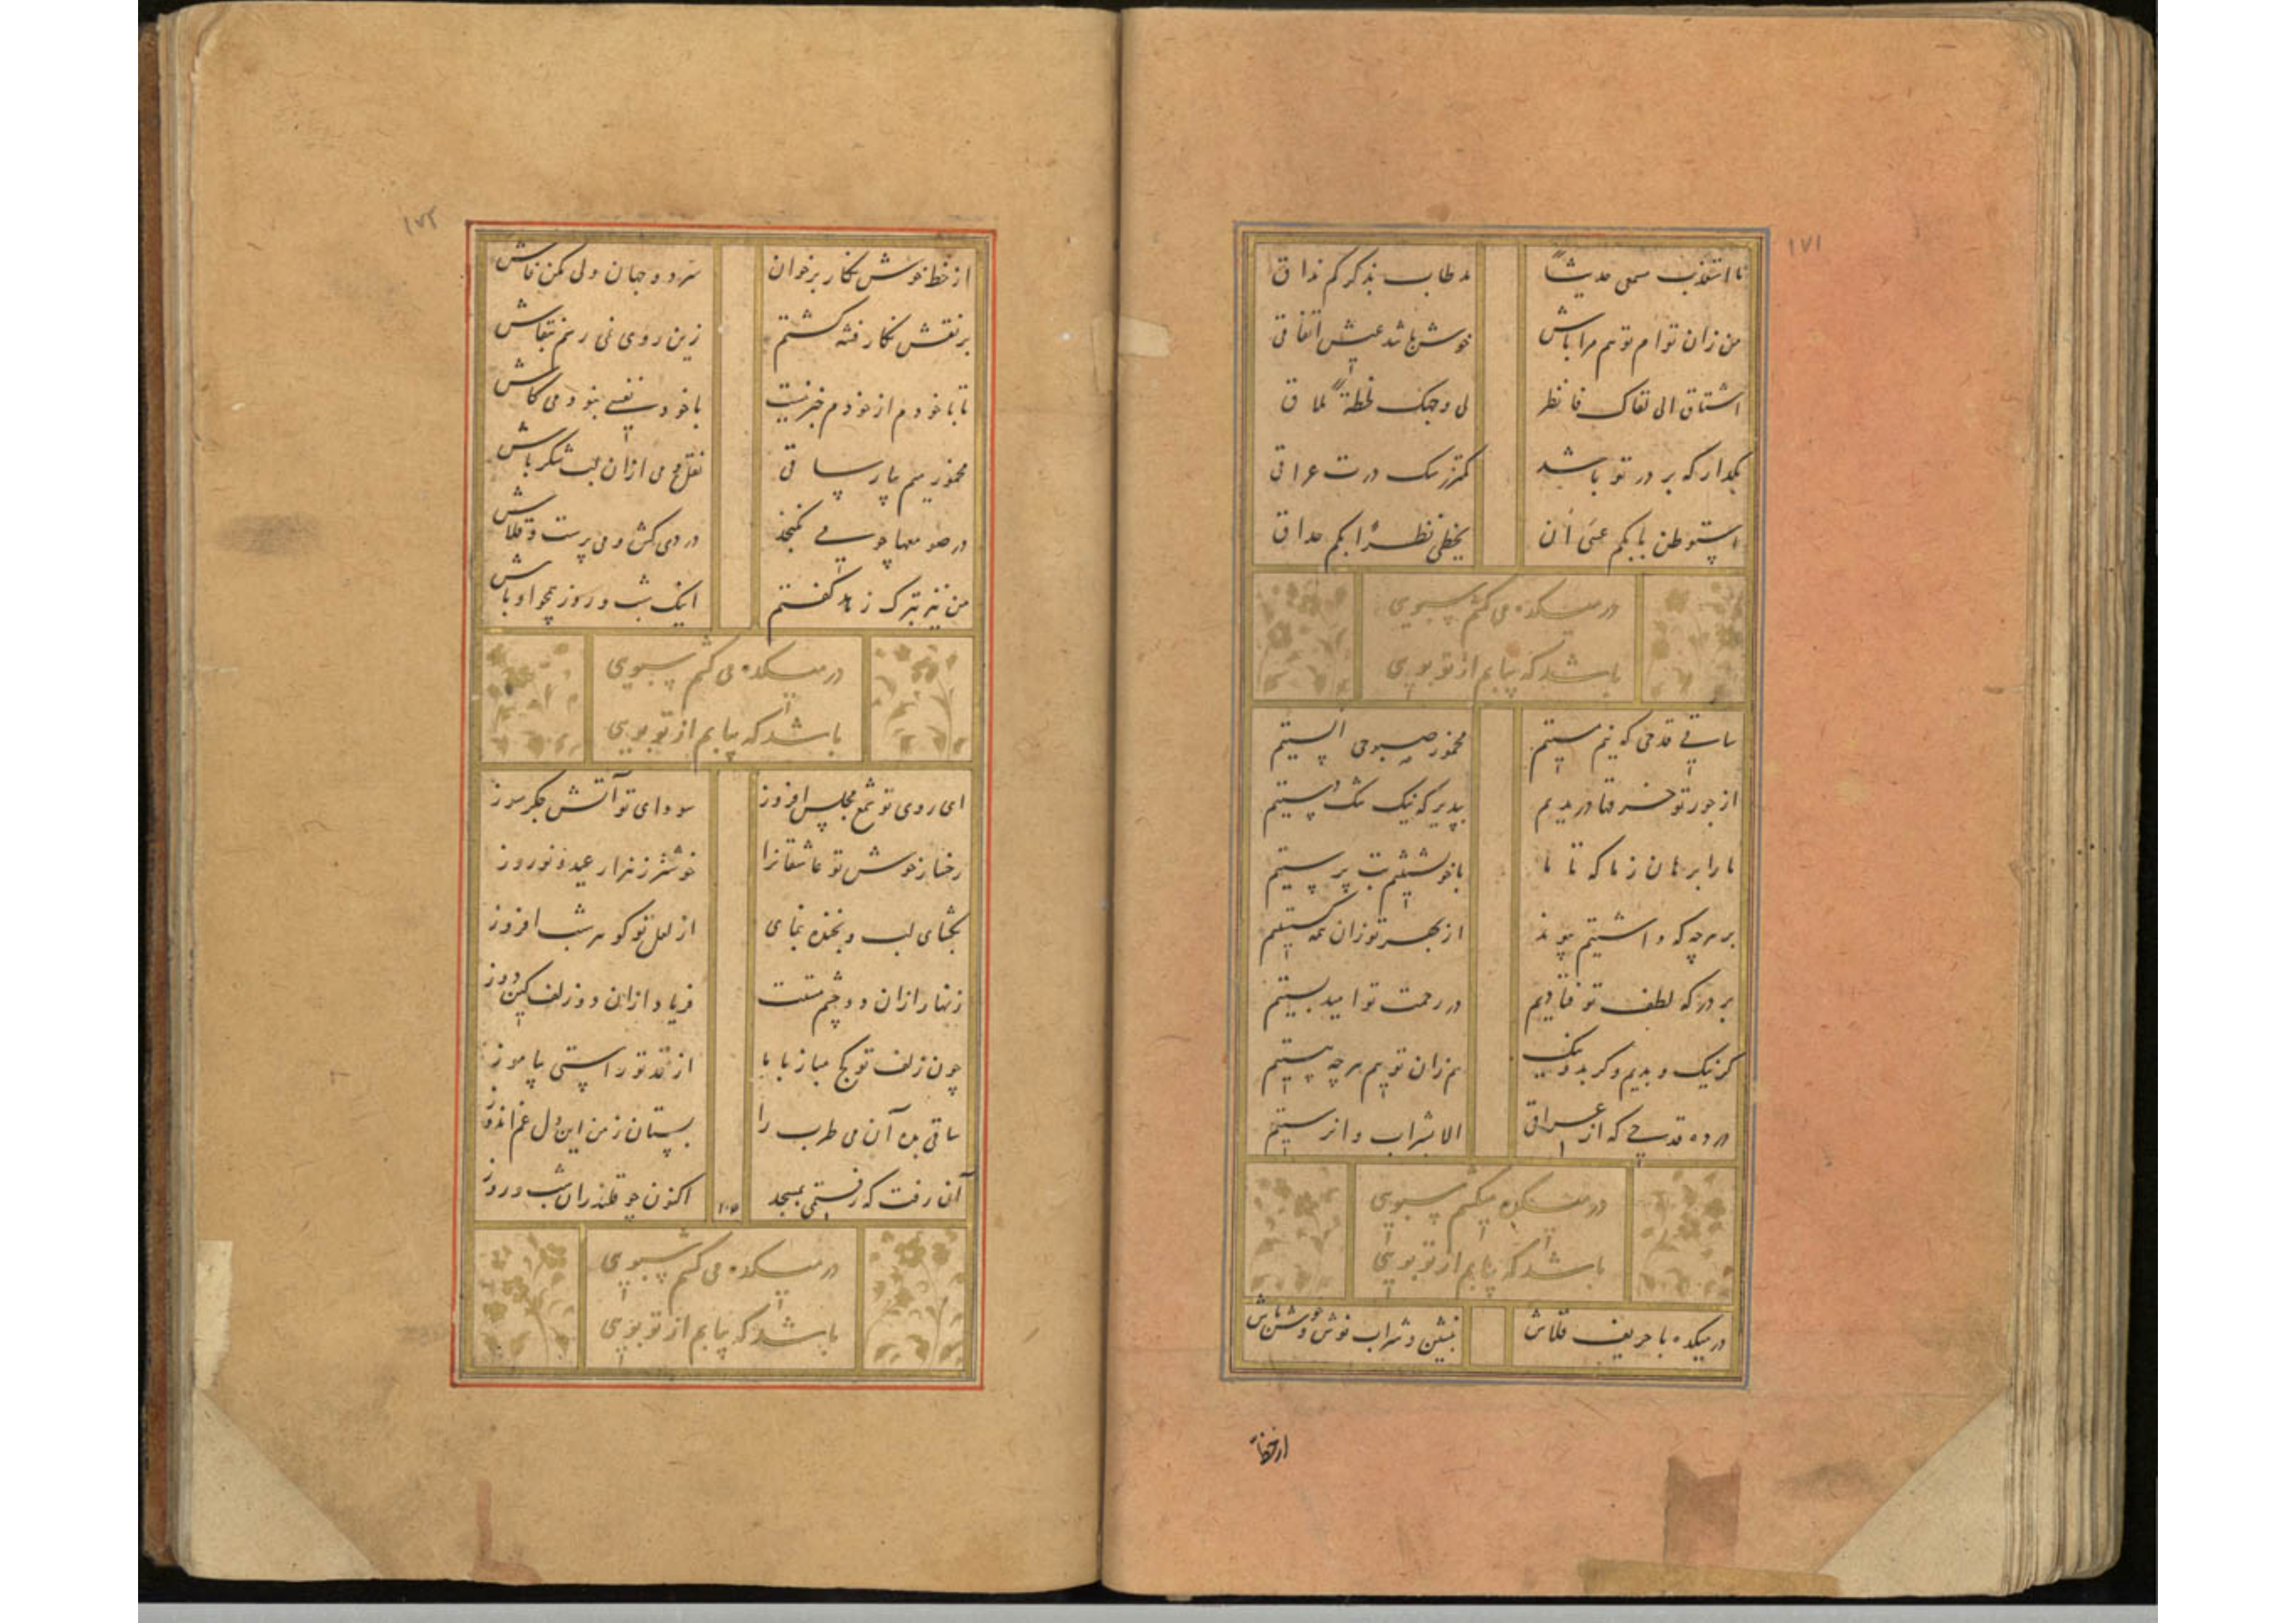 ۱۷۱
ما استعذب سمعی حدیثا مد طاب بذکرکم مذاق
من زان توام تو هم مرا باش خوش باشد عیش اتفاقی
اشتاق الی لقاک فانظر لی وجهک لحظة لماق
بگذار که بر در تو باشد کمتر سگ درت عراقی
استوطن بابکم عسی ان یحظی نظرا بکم حداق
در میکده می کشم سبویی
باشد که بیابم از تو بویی
ساقی قدحی که نیم مستیم مخمور صبوحی الستیم
از جور تو خرقها دریدیم بپذیر که نیک تنگ دستیم
ما را برهان ز ما که تا ما با خویشتنیم بت پرستیم
بر هرچه که داشتیم پیوند از بهر تو زان همه گسستیم
بر درگه لطف تو فتادیم در رحمت تو امید بستیم
گر نیک و بدیم و گر بد و نیک هم زان توییم هر چه هستیم
در ده قدحی که از عراقی الا بشراب وا نرستیم
در میکده میکشم سبویی
باشد که بیابم از تو بویی
در میکده با حریف قلاش بنشین و شراب نوش و خوش باش
از خط
۱۷۲
از خط خوش نگار برخوان سر دو جهان ولی مکن فاش
بر نقش نگار فتنه گشتم زین روی نمی رهم ز نقاش
تا با خودم از خودم خبر نیست با خود نفسی نبودمی کاش
مخمور میم بیار ساقی نقل و می از آن لب شکر پاش
در صومعها چو می نگنجد دردی کش و می پرست و قلاش
من نیز بترک زهد گفتم اینک شب و روز همچو اوباش
در میکده می کشم سبویی
باشد که بیابم از تو بویی
ای روی تو شمع مجلس افروز سودای تو آتش جگر سوز
رخسار خوش تو عاشقانرا خوشتر ز هزار عید و نوروز
بگشای لب و بخنده بنمای از لعل تو گوهر شب افروز
زنهار از آن دو چشم مستت فریاد از آن دو زلف کین دوز
چون زلف تو کج مباز با ما از قد تو راستی بیاموز
ساقی بده آن می طرب را بستان ز من این دل غم اندوز
آن رفت که رفتمی بمسجد اکنون چو قلندران شب و روز
در میکده می کشم سبویی
باشد که بیابم از تو بویی